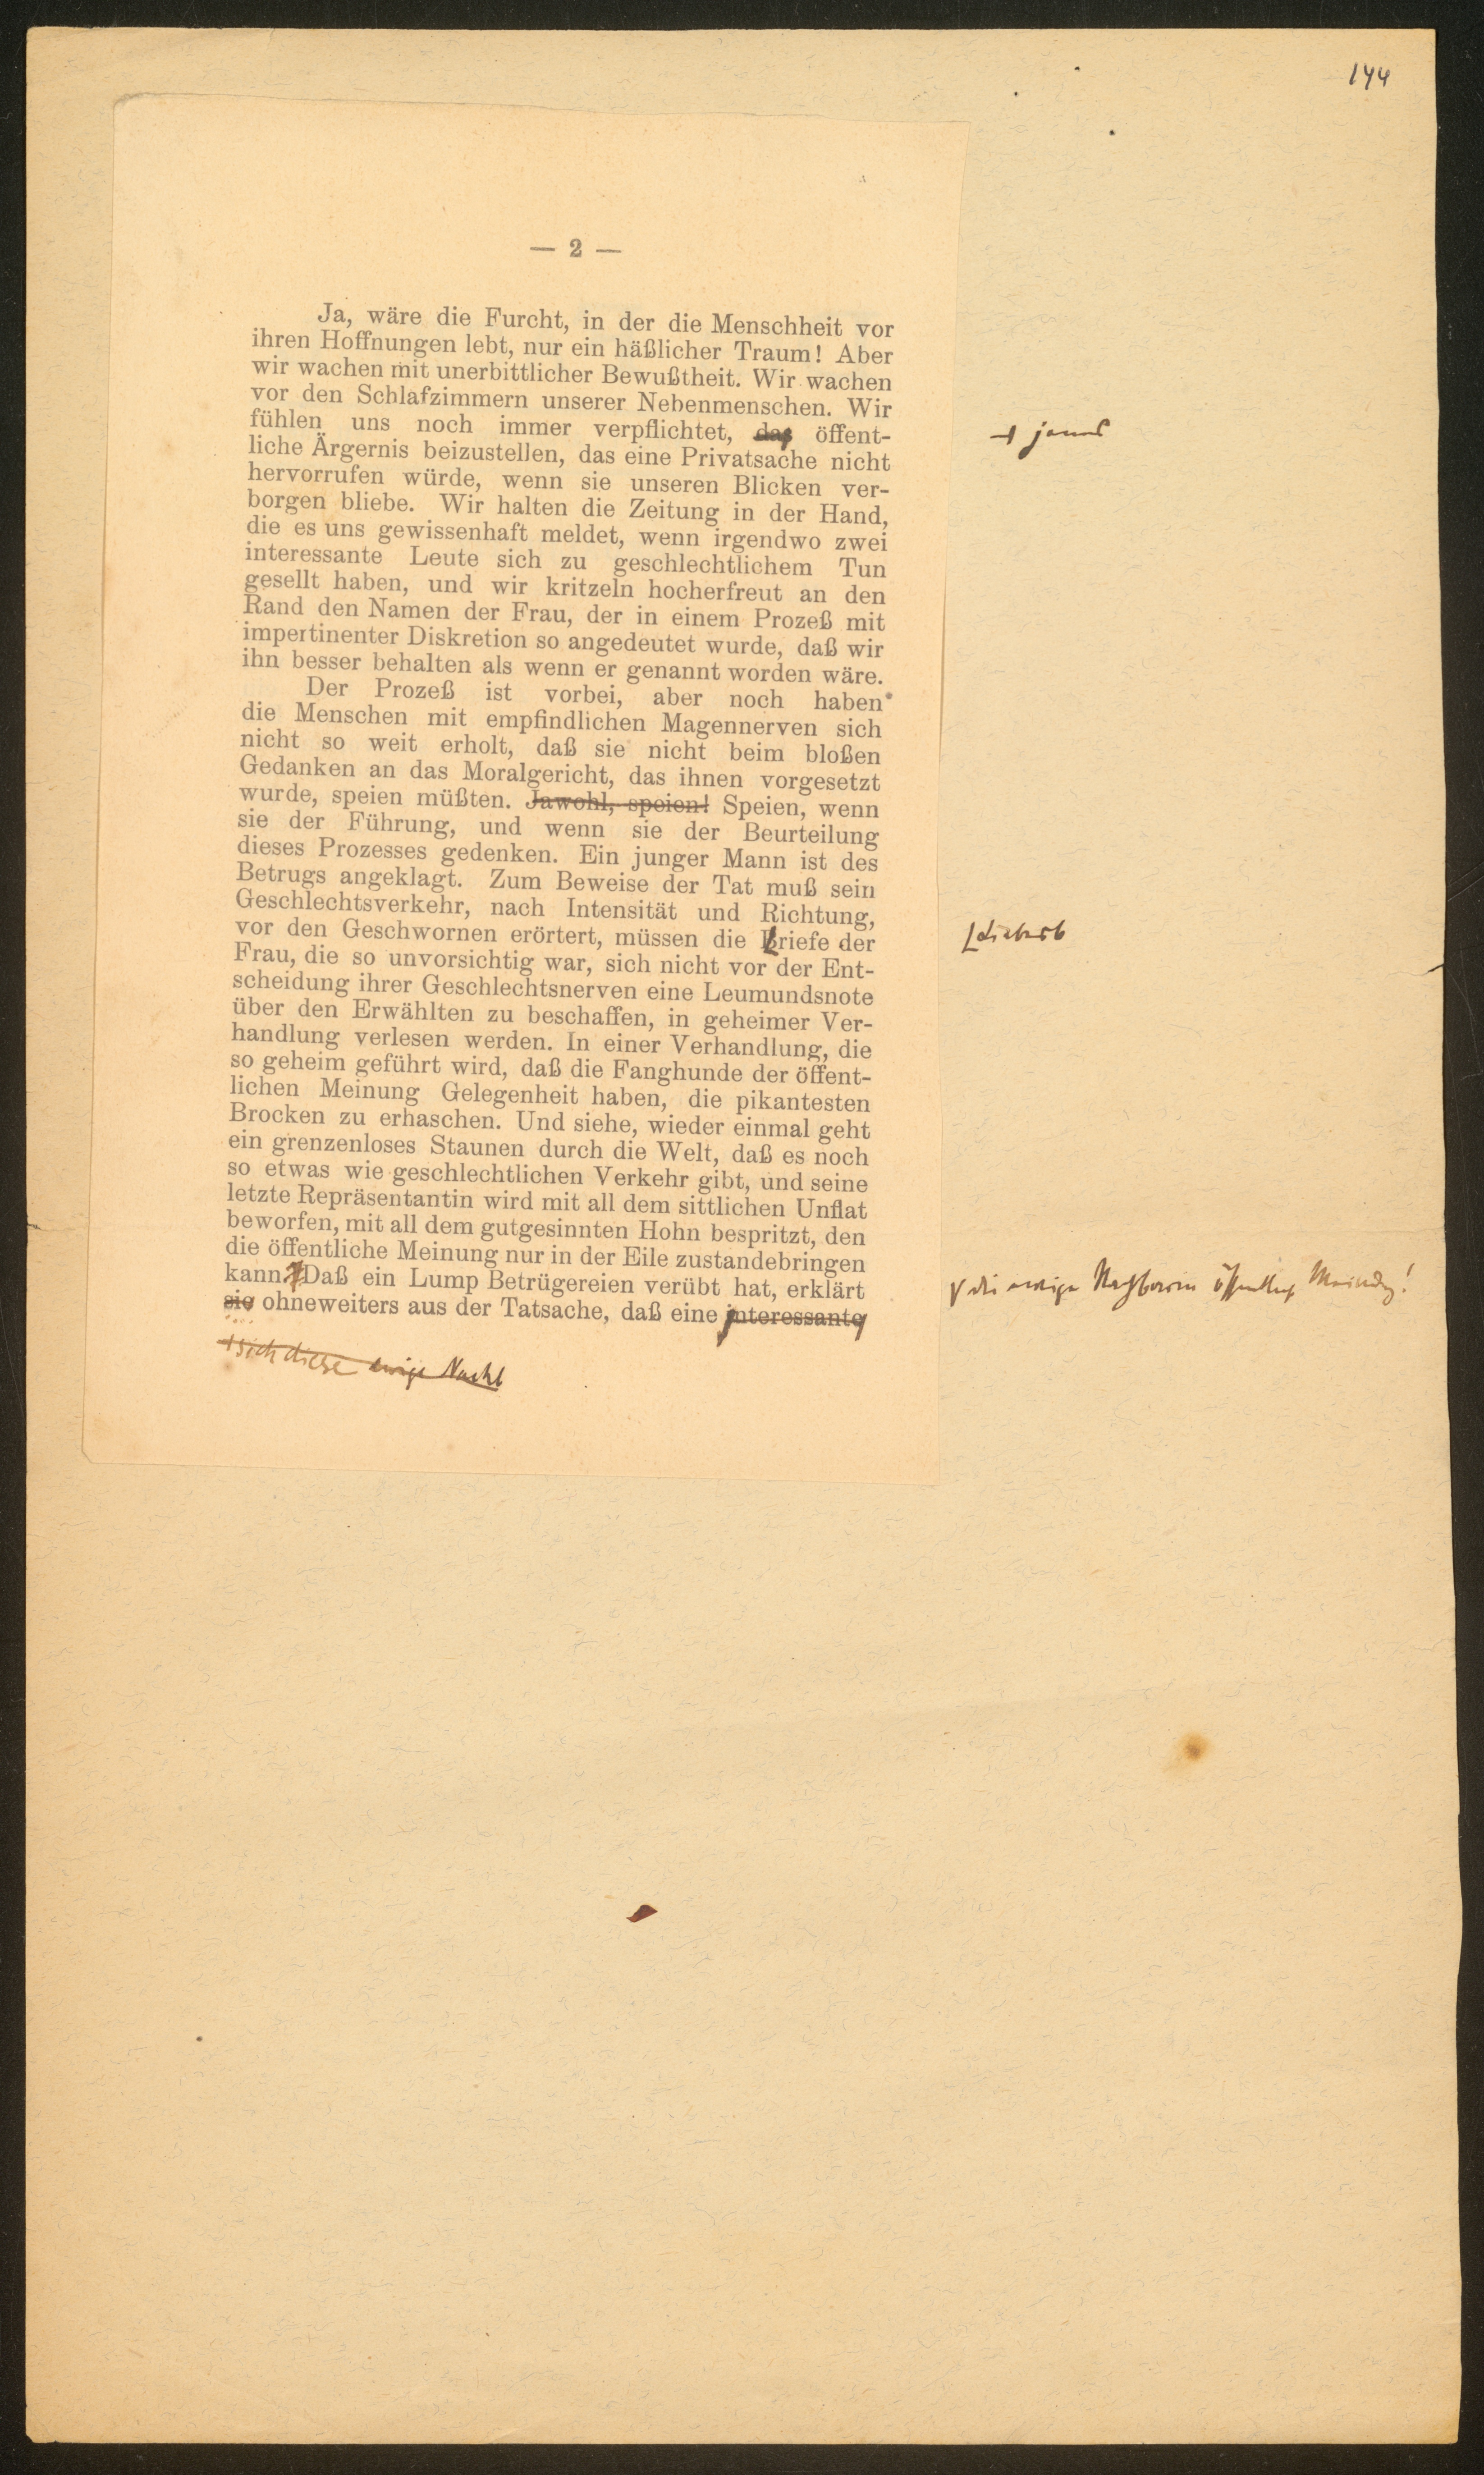 144
— 2 —
Ja, wäre die Furcht, in der die Menschheit vor
ihren Hoffnungen lebt, nur ein häßlicher Traum! Aber
wir wachen mit unerbittlicher Bewußtheit. Wir wachen
vor den Schlafzimmern unserer Nebenmenschen. Wir
fühlen uns noch immer verpflichtet, das öffent-
jenes
liche Ärgernis beizustellen, das eine Privatsache nicht
hervorrufen würde, wenn sie unseren Blicken ver-
borgen bliebe. Wir halten die Zeitung in der Hand,
die es uns gewissenhaft meldet, wenn irgendwo zwei
interessante Leute sich zu geschlechtlichem Tun
gesellt haben, und wir kritzeln hocherfreut an den
Rand den Namen der Frau, der in einem Prozeß mit
impertinenter Diskretion so angedeutet wurde, daß wir
ihn besser behalten als wenn er genannt worden wäre.
Der Prozeß ist vorbei, aber noch haben
die Menschen mit empfindlichen Magennerven sich
nicht so weit erholt, daß sie nicht beim bloßen
Gedanken an das Moralgericht, das ihnen vorgesetzt
wurde, speien müßten. Jawohl, speien! Speien, wenn
sie der Führung, und wenn sie der Beurteilung
dieses Prozesses gedenken. Ein junger Mann ist des
Betrugs angeklagt. Zum Beweise der Tat muß sein
Geschlechtsverkehr, nach Intensität und Richtung,
vor den Geschwornen erörtert, müssen die Briefe der
Liebesb
Frau, die so unvorsichtig war, sich nicht vor der Ent-
scheidung ihrer Geschlechtsnerven eine Leumundsnote
über den Erwählten zu beschaffen, in geheimer Ver-
handlung verlesen werden. In einer Verhandlung, die
so geheim geführt wird, daß die Fanghunde der öffent-
lichen Meinung Gelegenheit haben, die pikantesten
Brocken zu erhaschen. Und siehe, wieder einmal geht
ein grenzenloses Staunen durch die Welt, daß es noch
so etwas wie geschlechtlichen Verkehr gibt, und seine
letzte Repräsentantin wird mit all dem sittlichen Unflat
beworfen, mit all dem gutgesinnten Hohn bespritzt, den
die öffentliche Meinung nur in der Eile zustandebringen
kann. Daß ein Lump Betrügereien verübt hat, erklärt
die ewige Nachbarin öffentliche Meinung!
sie ohneweiters aus der Tatsache, daß eine interessante
sich diese ewige Nachb